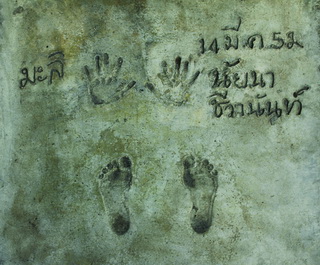 มะลิ
14 มี.ค.52
นัยนา
ชีวานันท์